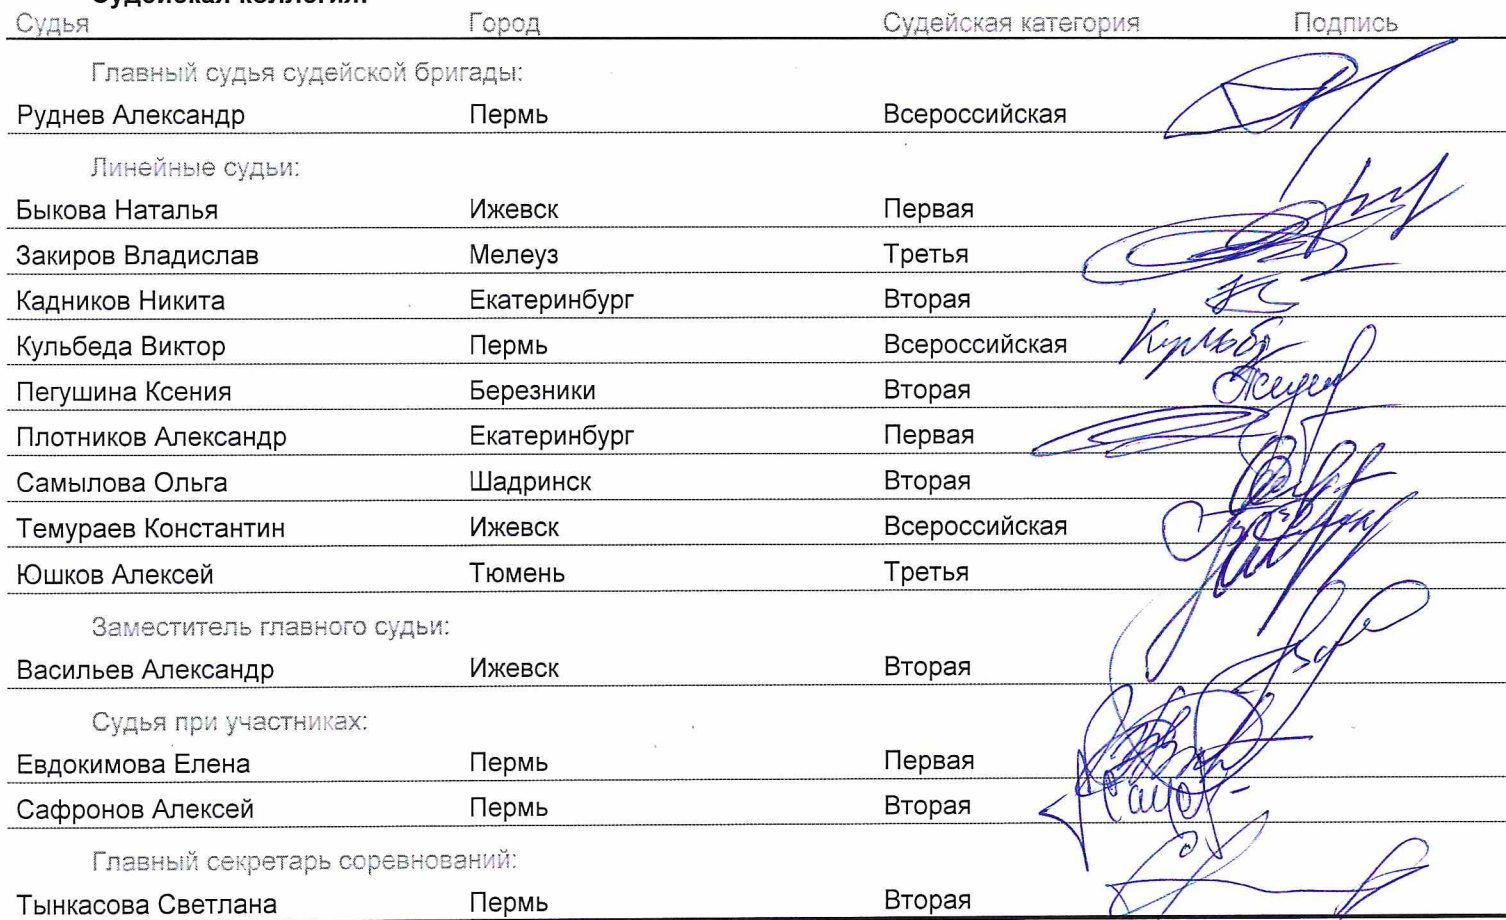 Судейская коллегия:
Судья Город Судейская категория Подпись
Главный судья судейской бригады:
Руднев Александр Пермь Всероссийская
Линейные судьи:
Быкова Наталья Ижевск Первая
Закиров Владислав Мелеуз Третья
Кадников Никита Екатеринбург Вторая
Кульбеда Виктор Пермь Всероссийская
Пегушина Ксения Березники Вторая
Плотников Александр Екатеринбург Первая
Самылова Ольга Шадринск Вторая
Темураев Константин Ижевск Всероссийская
Юшков Алексей Тюмень Третья
Заместитель главного судьи:
Васильев Александр Ижевск Вторая
Судья при участниках:
Евдокимова Елена Пермь Первая
Сафронов Алексей Пермь Вторая
Главный секретарь соревнований:
Тынкасова Светлана Пермь Вторая